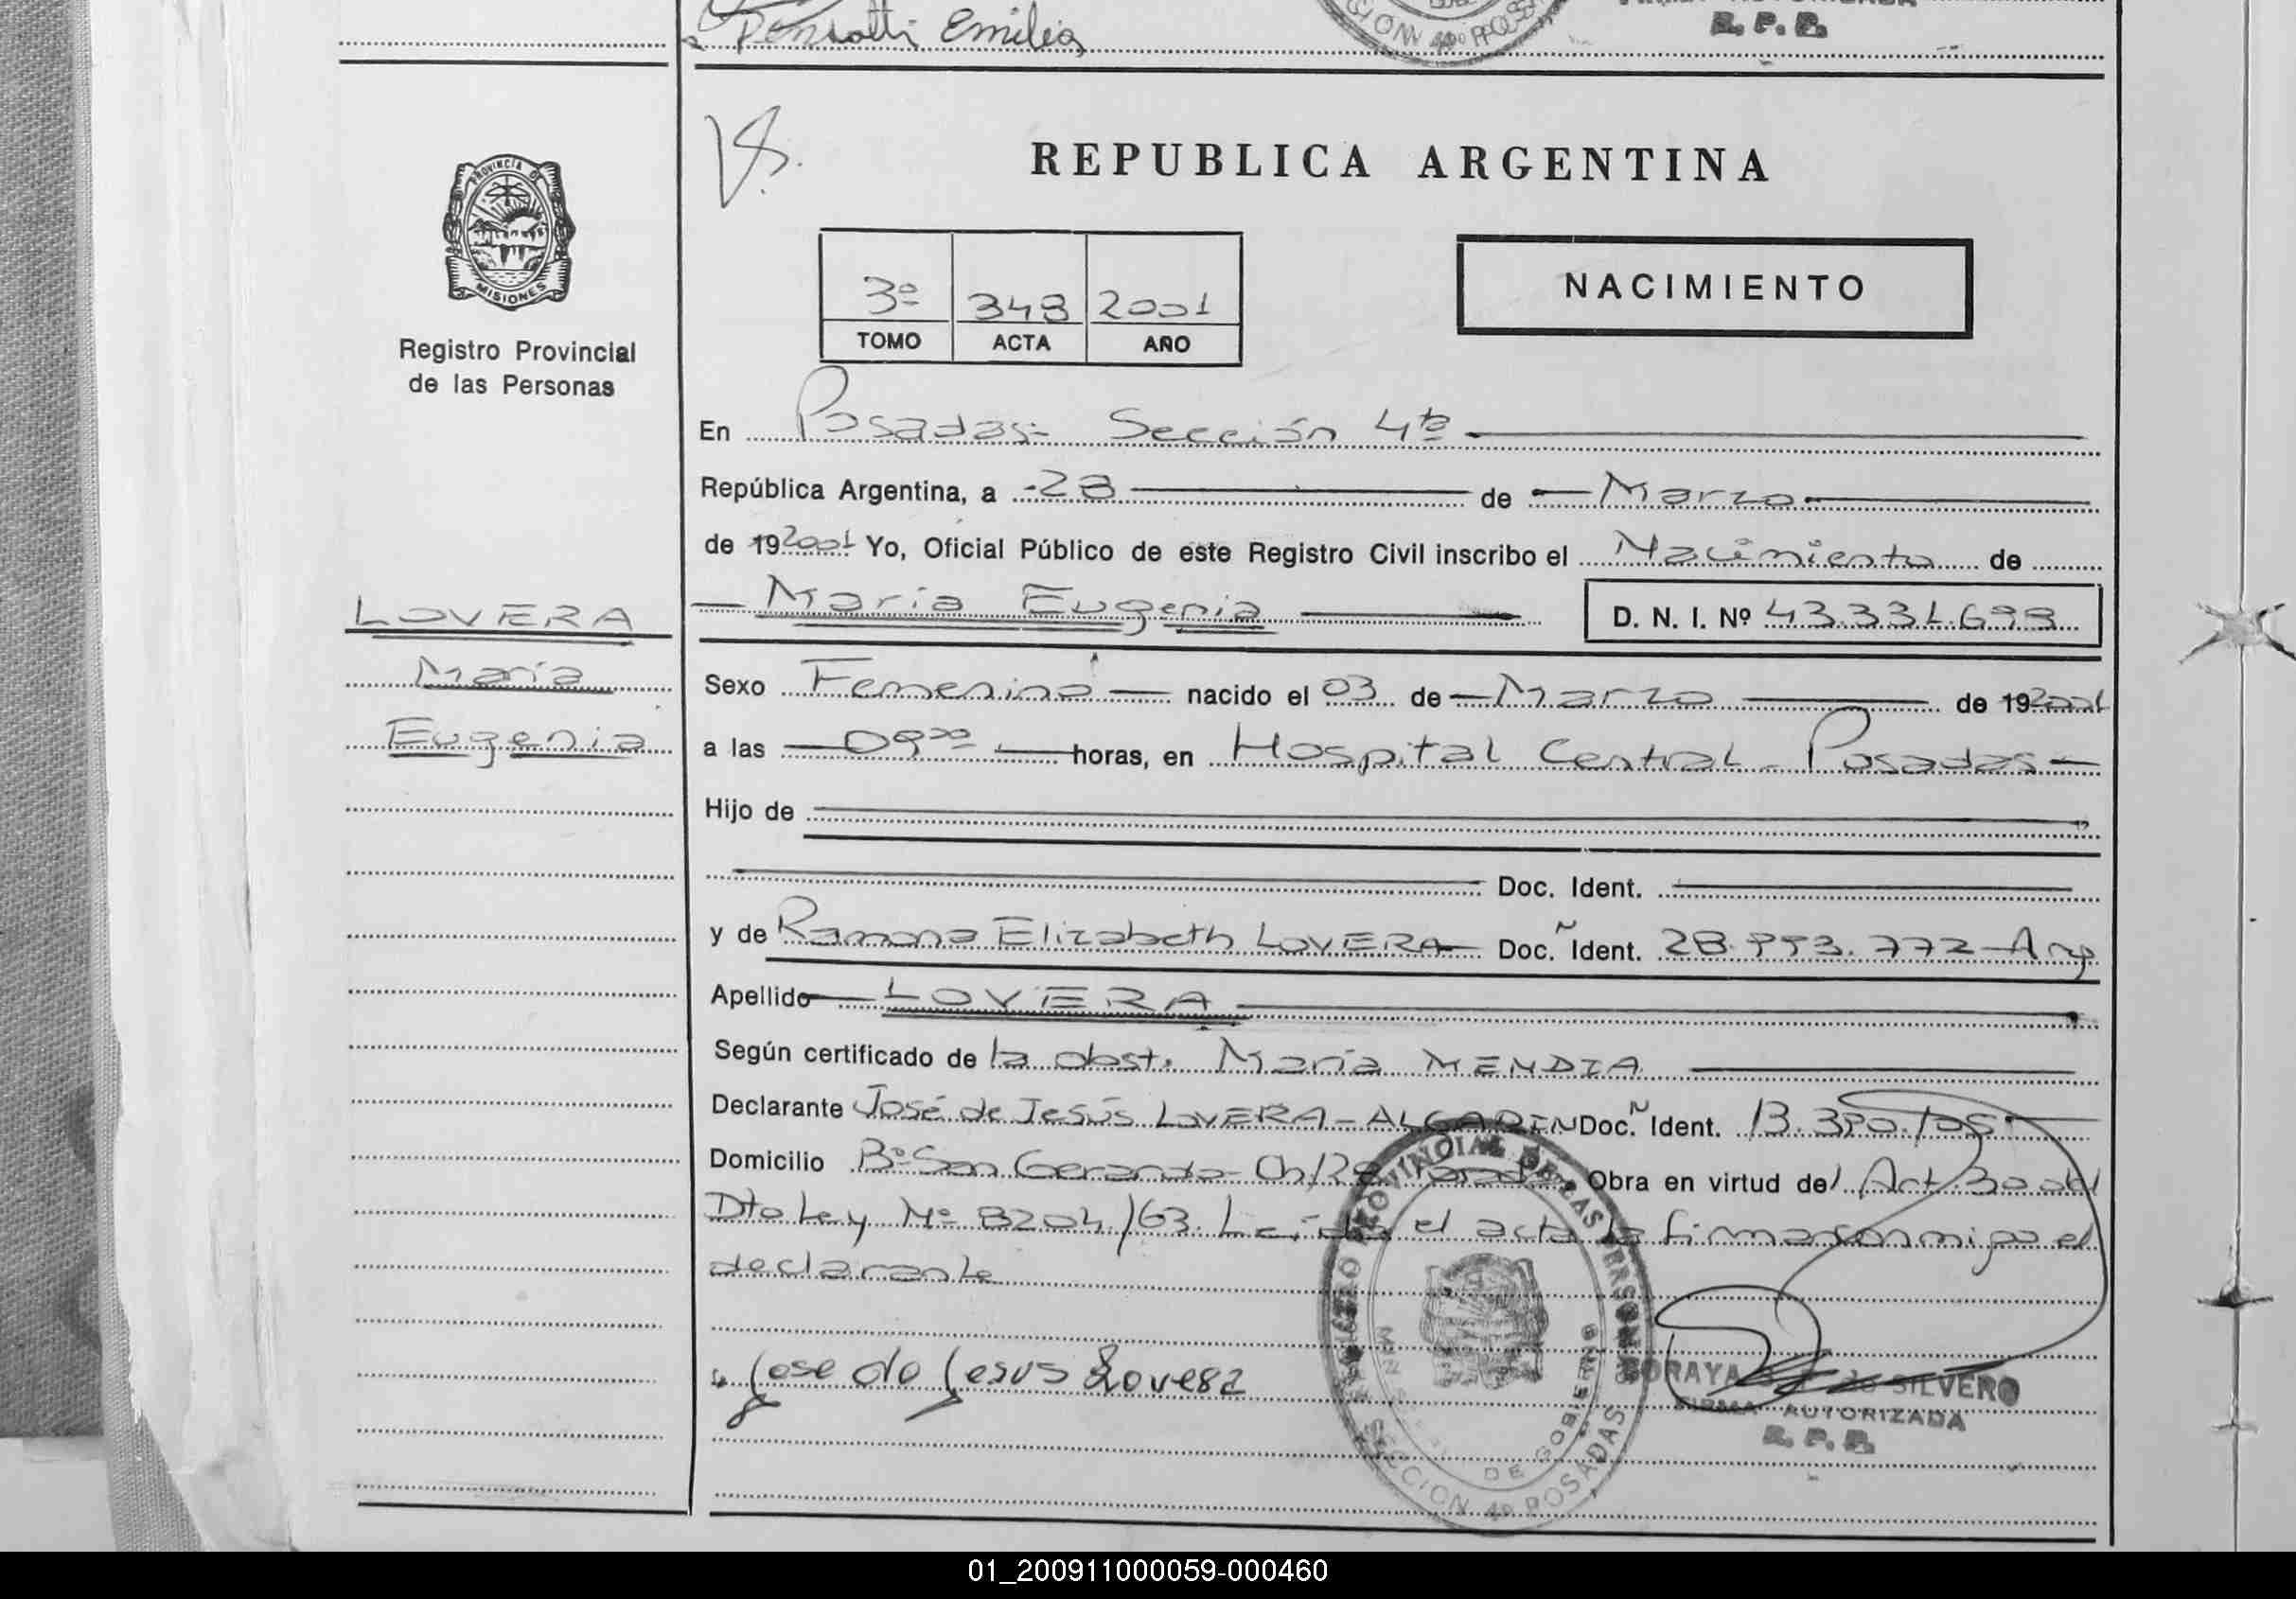 Emilia
R. P. P.
PROVINCIA DE
MISIONES
Registro Provincial
de las Personas
REPUBLICA ARGENTINA
NACIMIENTO
3º 348 2001
TOMO ACTA AÑO
En Posadas- Sección 4ta
República Argentina, a -28 de Marzo
de 192001 Yo, Oficial Público de este Registro Civil inscribo el Nacimiento de
LOVERA
María Eugenia D. N. I. Nº 43.331.698
María
Sexo Femenino nacido el 03 de Marzo de 192001
Eugenia
a las 09 horas, en Hospital Central - Posadas
Hijo de
Doc. Ident.
y de Ramona Elizabeth LOVERA Doc. Ident. 772 Arg
Apellido LOVERA
Según certificado de la obst. María MENDIA
Declarante José de Jesús LOVERA - Doc. Ident. 13.
Domicilio Bº San Gerardo Obra en virtud del Art 30 del
Dto Ley Nº 8204/63. Leída el acta la firma conmigo el
declarante
Jose de Jesus Lovera
REGISTRO PROVINCIAL DE LAS PERSONAS
DE GOBIERNO
SECCION 4º POSADAS
SORAYA SILVERO
FIRMA AUTORIZADA
R. P. P.
01_200911000059-000460